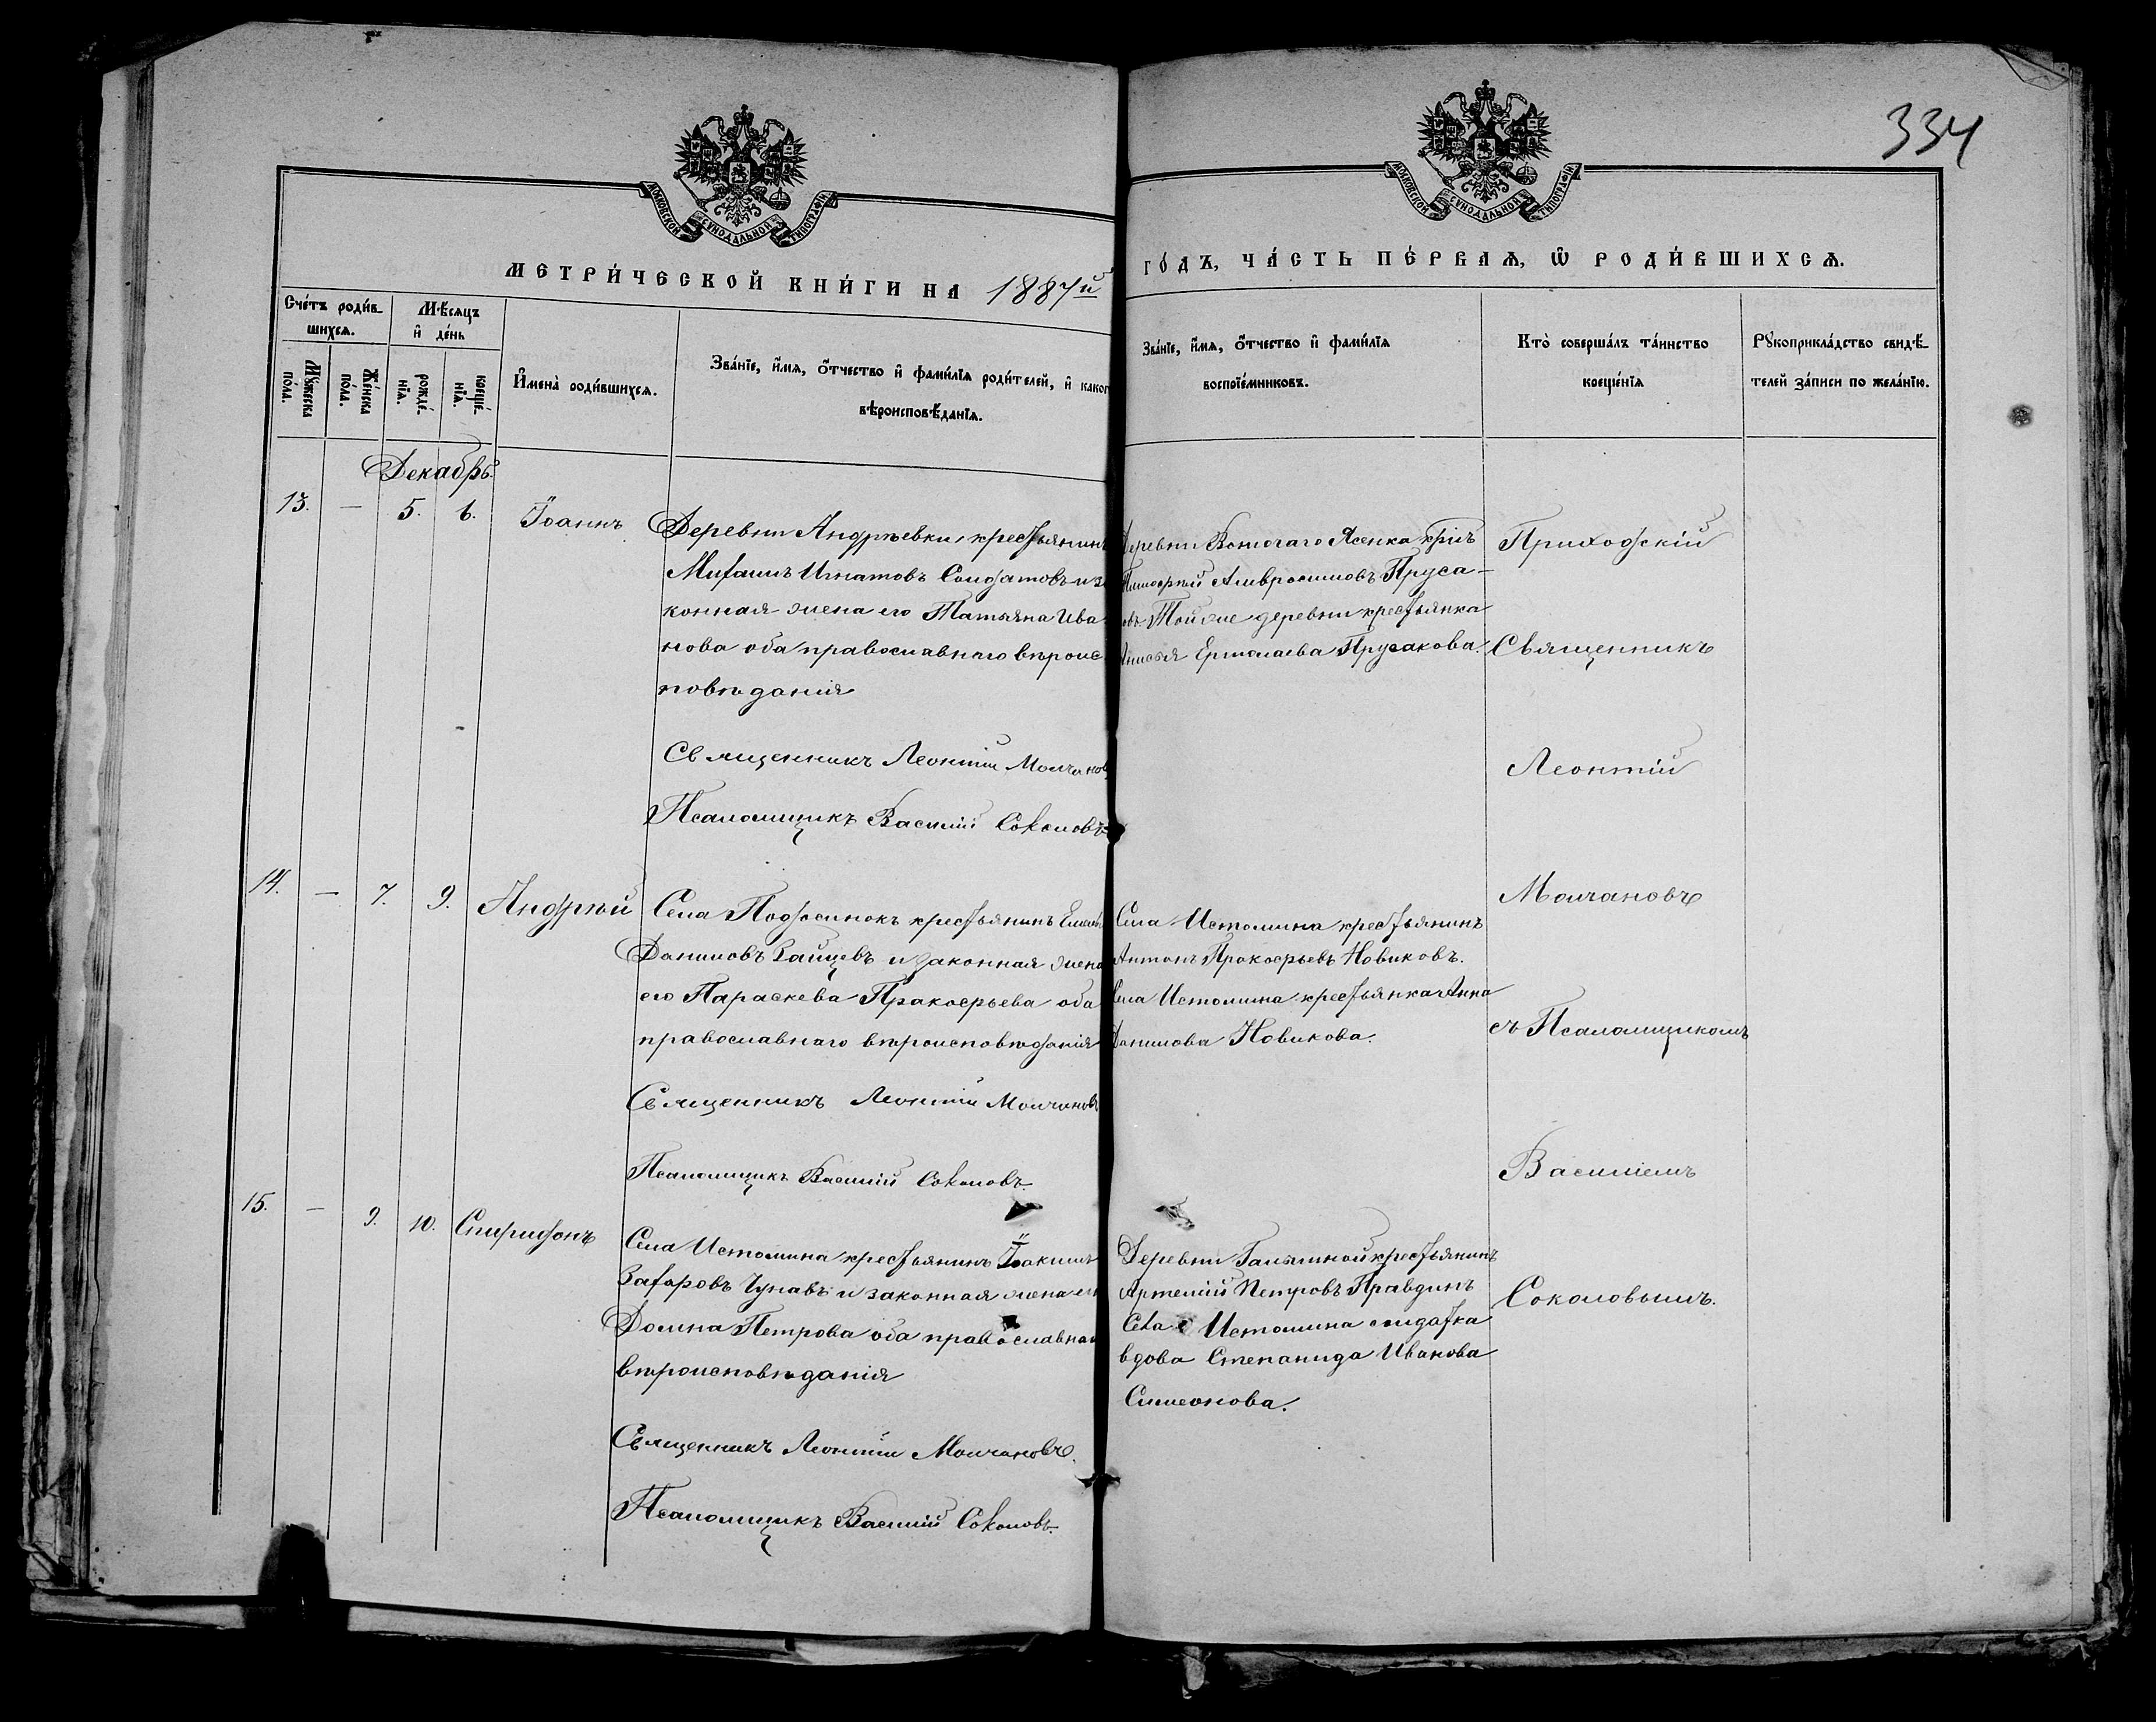 334
МОСКОВСКОЙ СѴНОДАЛЬНОЙ ТИПОГРАФІИ
МОСКОВСКОЙ СѴНОДАЛЬНОЙ ТИПОГРАФІИ
МЕТРИ́ЧЕСКОЙ КНИ́ГИ НА 1887й ГО́ДЪ, ЧА́СТЬ ПЕ́РВАѦ, Ѡ҆ РОДИ́ВШИХСѦ.
Сче́тъ роди́в-
шихсѧ.
Мꙋ́жеска по́ла.
Же́нска по́ла.
Мѣ́сѧцъ
и҆ де́нь
рожде́-нїѧ.
креще́-нїѧ.
И҆мена̀ роди́вшихсѧ.
Зва́нїе, и҆́мѧ, ѻ҆́тчество и҆ фами́лїѧ роди́телей, и҆ како
вѣроисповѣ́данїѧ.
Зва́нїе, и҆́мѧ, ѻ҆́тчество и҆ фами́лїѧ
воспрїе́мниковъ.
Кто̀ соверша́лъ та́инство
креще́нїѧ
Рꙋкоприкла́дство свидѣ́-
телей за́писи по жела́нїю.
Декабрь.
13. — 5. 6. Іоаннъ
Деревни Андреевки, крестьянинъ
Михаилъ Игнатовъ Солдатовъ и за
конная жена его Татьяна Ива
нова оба православнаго вѣроис
повѣданія
Священникъ Леонтій Молчановъ
Псаломщикъ Василій Соколовъ
Деревни Ясенка крнъ
Амвросимовъ Пруса-
овъ Той же деревни крестьянка
Анисья Ермолаева Прусакова.
14. — 7. 9. Андрей
Села Подосинокъ крестьянинъ
Даниловъ Зайцевъ и законная жена
его Параскева Прокофьева оба
православнаго вѣроисповѣданія
Священникъ Леонтій Молчановъ
Псаломщикъ Василій Соколовъ.
Села Истомина крестьянинъ
Антонъ Прокофьевъ Новиковъ.
Села Истомина крестьянка Анна
Данилова Новикова.
15. — 9. 10. Спиридонъ
Села Истомина крестьянинъ Іоакимъ
Захаровъ и законная жена его
Домна Петрова оба православна
вѣроисповѣданія
Священникъ Леонтій Молчановъ.
Псаломщикъ Василій Соколовъ.
Деревни крестьянинъ
Артемій Петровъ Правдинъ
Села Истомина солдатка
вдова Степанида Иванова
Симеонова.
Приходскій
Священникъ
Леонтій
Молчановъ
съ Псаломщикомъ
Василіемъ
Соколовымъ.